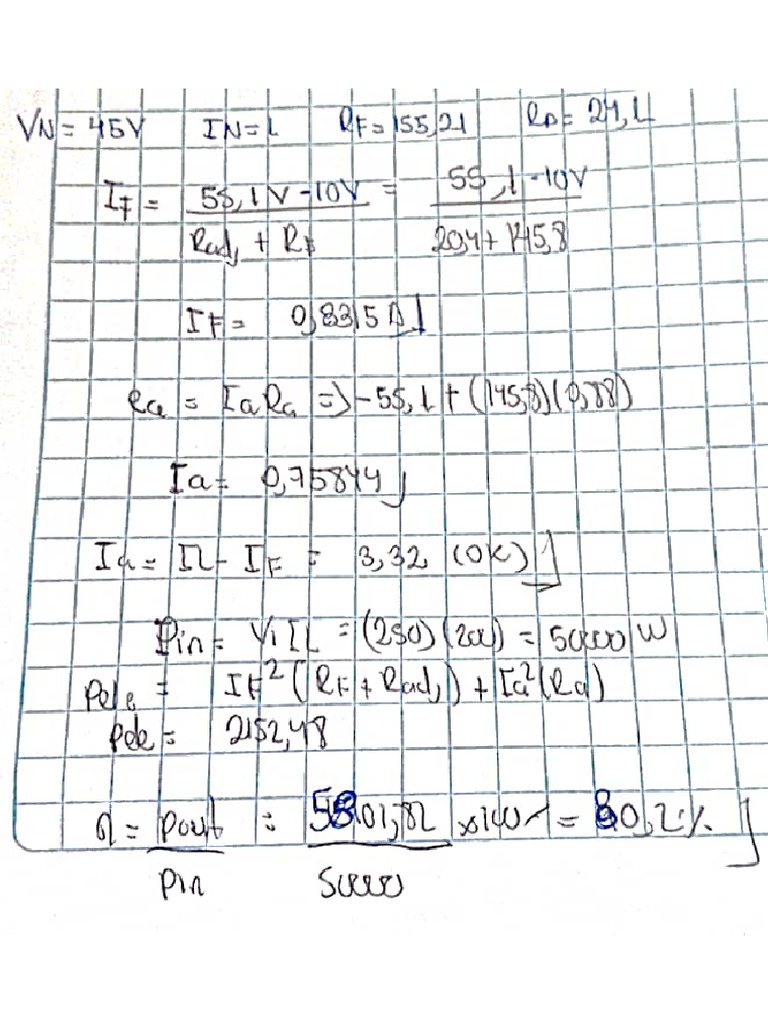 VN = 45V IN = L RF = 155,21 Ra = 24,L
IF = 55,1V - 10V / Radj + RF = 55,1 - 10V / 20,4 + 145,8
IF = 0,8315 A
Ra = IaRa => -55,1 + (145,8)(0,88)
Ia = 0,75844
Ia = IL - IF = 3,32 (OK)
Pin = V1IL = (250)(200) = 50000 W
Pele = IF²(RF + Radj) + Ia²(Ra)
Pele = 2152,48
η = Pout / Pin = 5801,82 / 50000 x100% = 80,2%